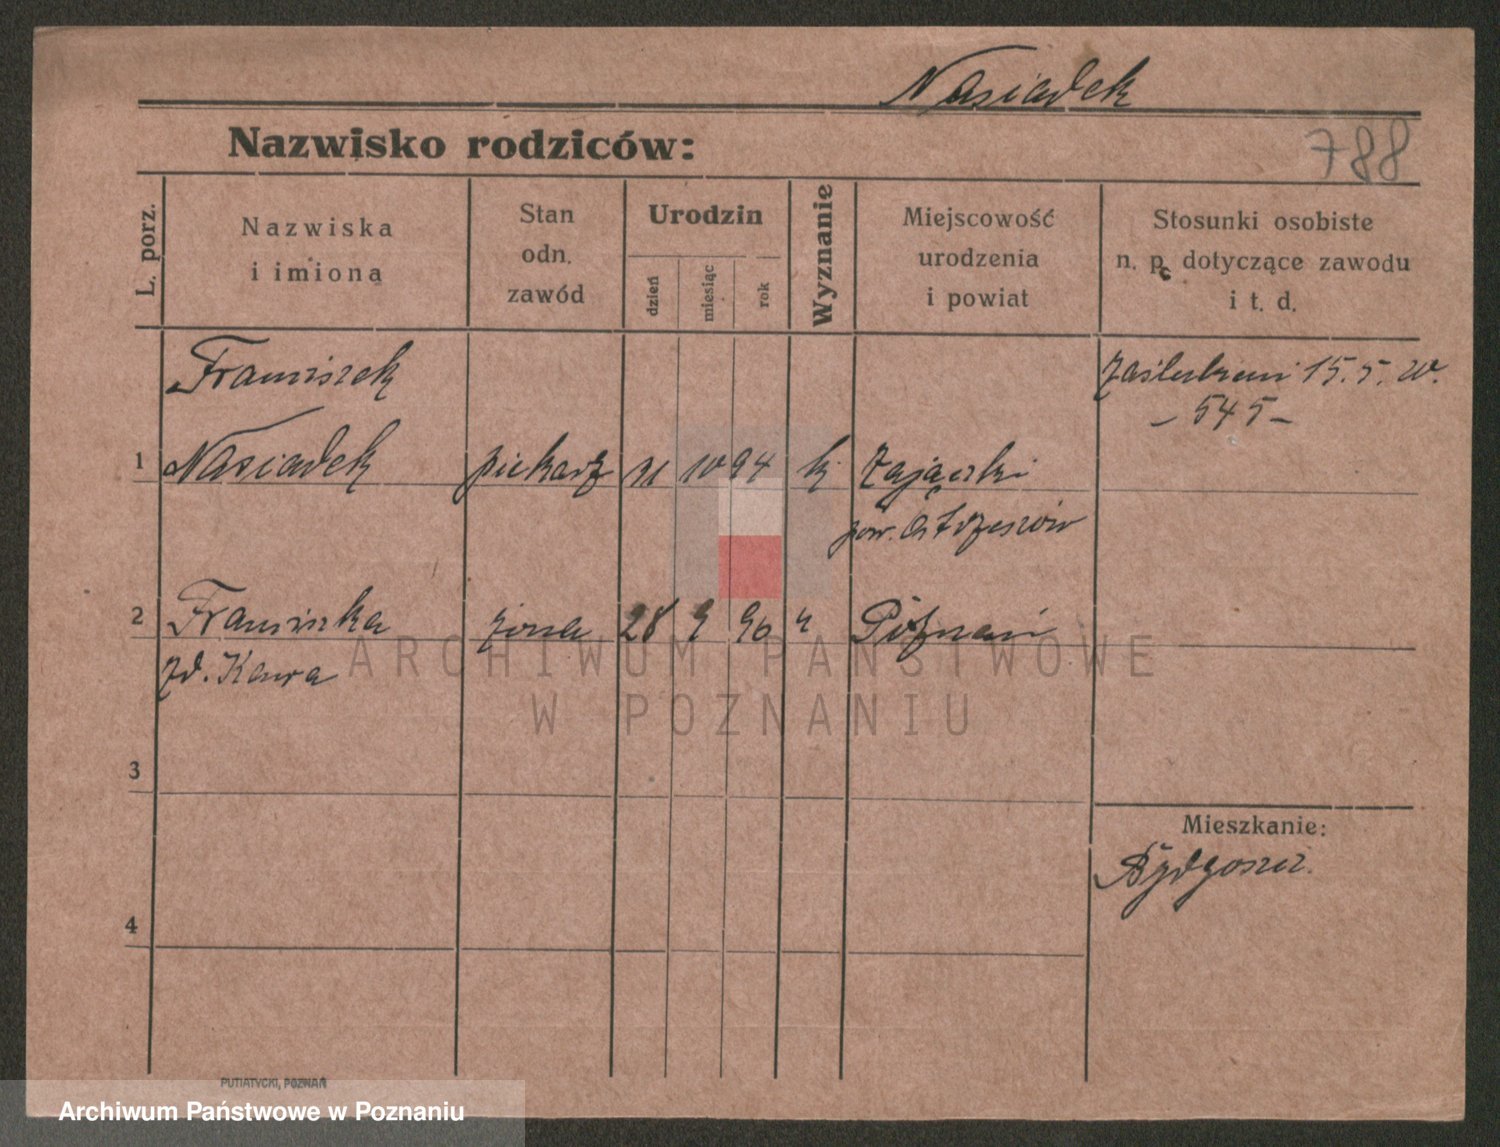 Nasiadek
Nazwisko rodziców:
788
L. porz.
Nazwiska
i imiona
Stan
odn.
zawód
Urodzin
dzień
miesiąc
rok
Wyznanie
Miejscowość
urodzenia
i powiat
Stosunki osobiste
n. p. dotyczące zawodu
i t. d.
Franciszek
zaślubieni 15.5.20.
- 545 -
1 Nasiadek piekarz 10 94 k. Zajączki
pow. Ostrzeszów
2 Franciszka żona 28 9 96 " Poznań
zd. Kawa
ARCHIWUM PAŃSTWOWE
W POZNANIU
3
Mieszkanie:
Bydgoszcz.
4
PUTIATYCKI, POZNAŃ
Archiwum Państwowe w Poznaniu